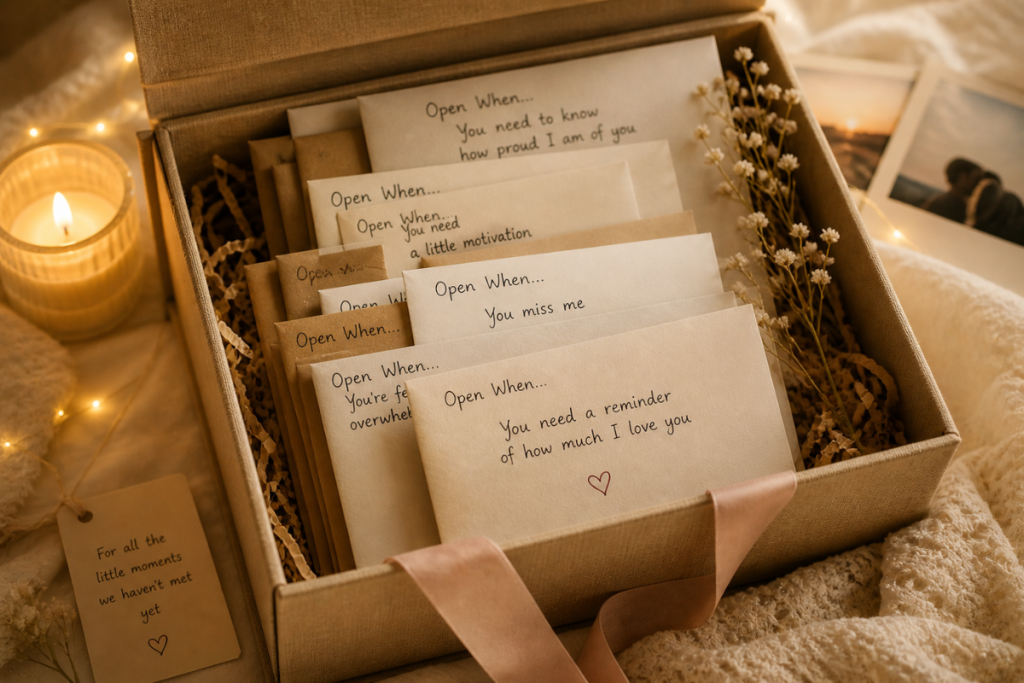 Open When...
You need to know
how proud I am of you
Open When...
Open When...
You need
a little motivation
Open
Open When...
You miss me
Open
Open When...
Open When...
You're
Open When...
You need a reminder
of how much I love you
For all the
little moments
we haven't met
yet